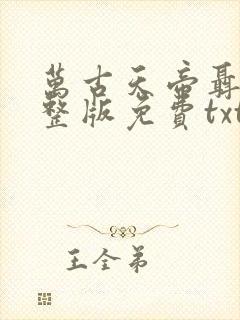 萬古天帝聶
整版免費txt
王全弟